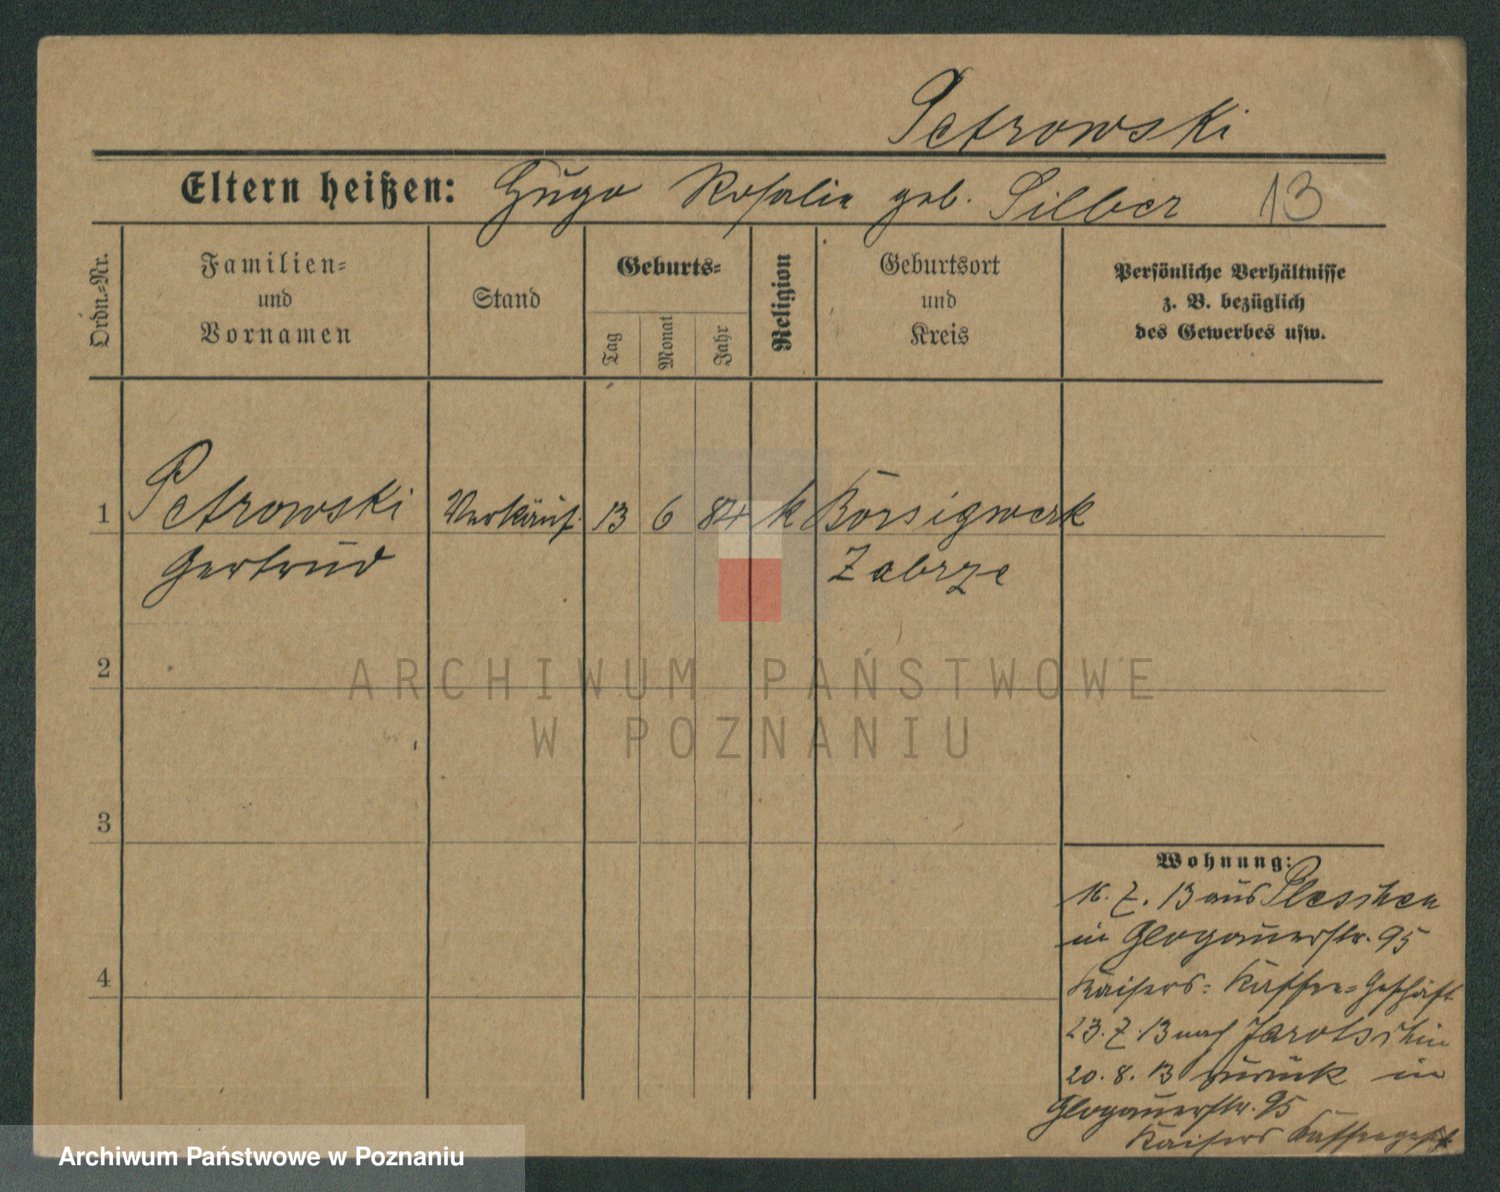 Petrowski
Eltern heißen: Hugo Rosalie geb. Silber 13
Ordn.-Nr.
Familien-
und
Vornamen
Stand
Geburts-
Tag
Monat
Jahr
Religion
Geburtsort
und
Kreis
Persönliche Verhältnisse
z. B. bezüglich
des Gewerbes usw.
1 Petrowski Verkäuf. 13 6 84 k Borsigwerk
Gertrud Zabrze
2
ARCHIWUM PAŃSTWOWE
W POZNANIU
3
4
Wohnung:
16. 7. 13 aus Pleschen
in Glogauerstr. 95
Kaisers-Kaffee-Geschäft
23. 7. 13 nach Jarotschin
20. 8. 13 zurück in
Glogauerstr. 95
Kaisers Kaffeegesch
Archiwum Państwowe w Poznaniu